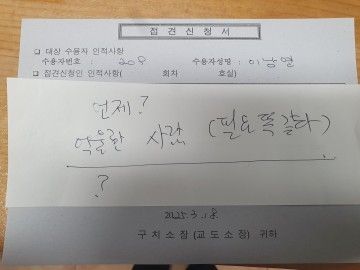 접견신청서
□ 대상 수용자 인적사항
수용자번호 : 208 수용자성명 : 이남열
□ 접견신청인 인적사항( 회차 호실)
언제?
억울한 사람 (필요똑같다)
?
2025.3.18
구치소장(교도소장) 귀하